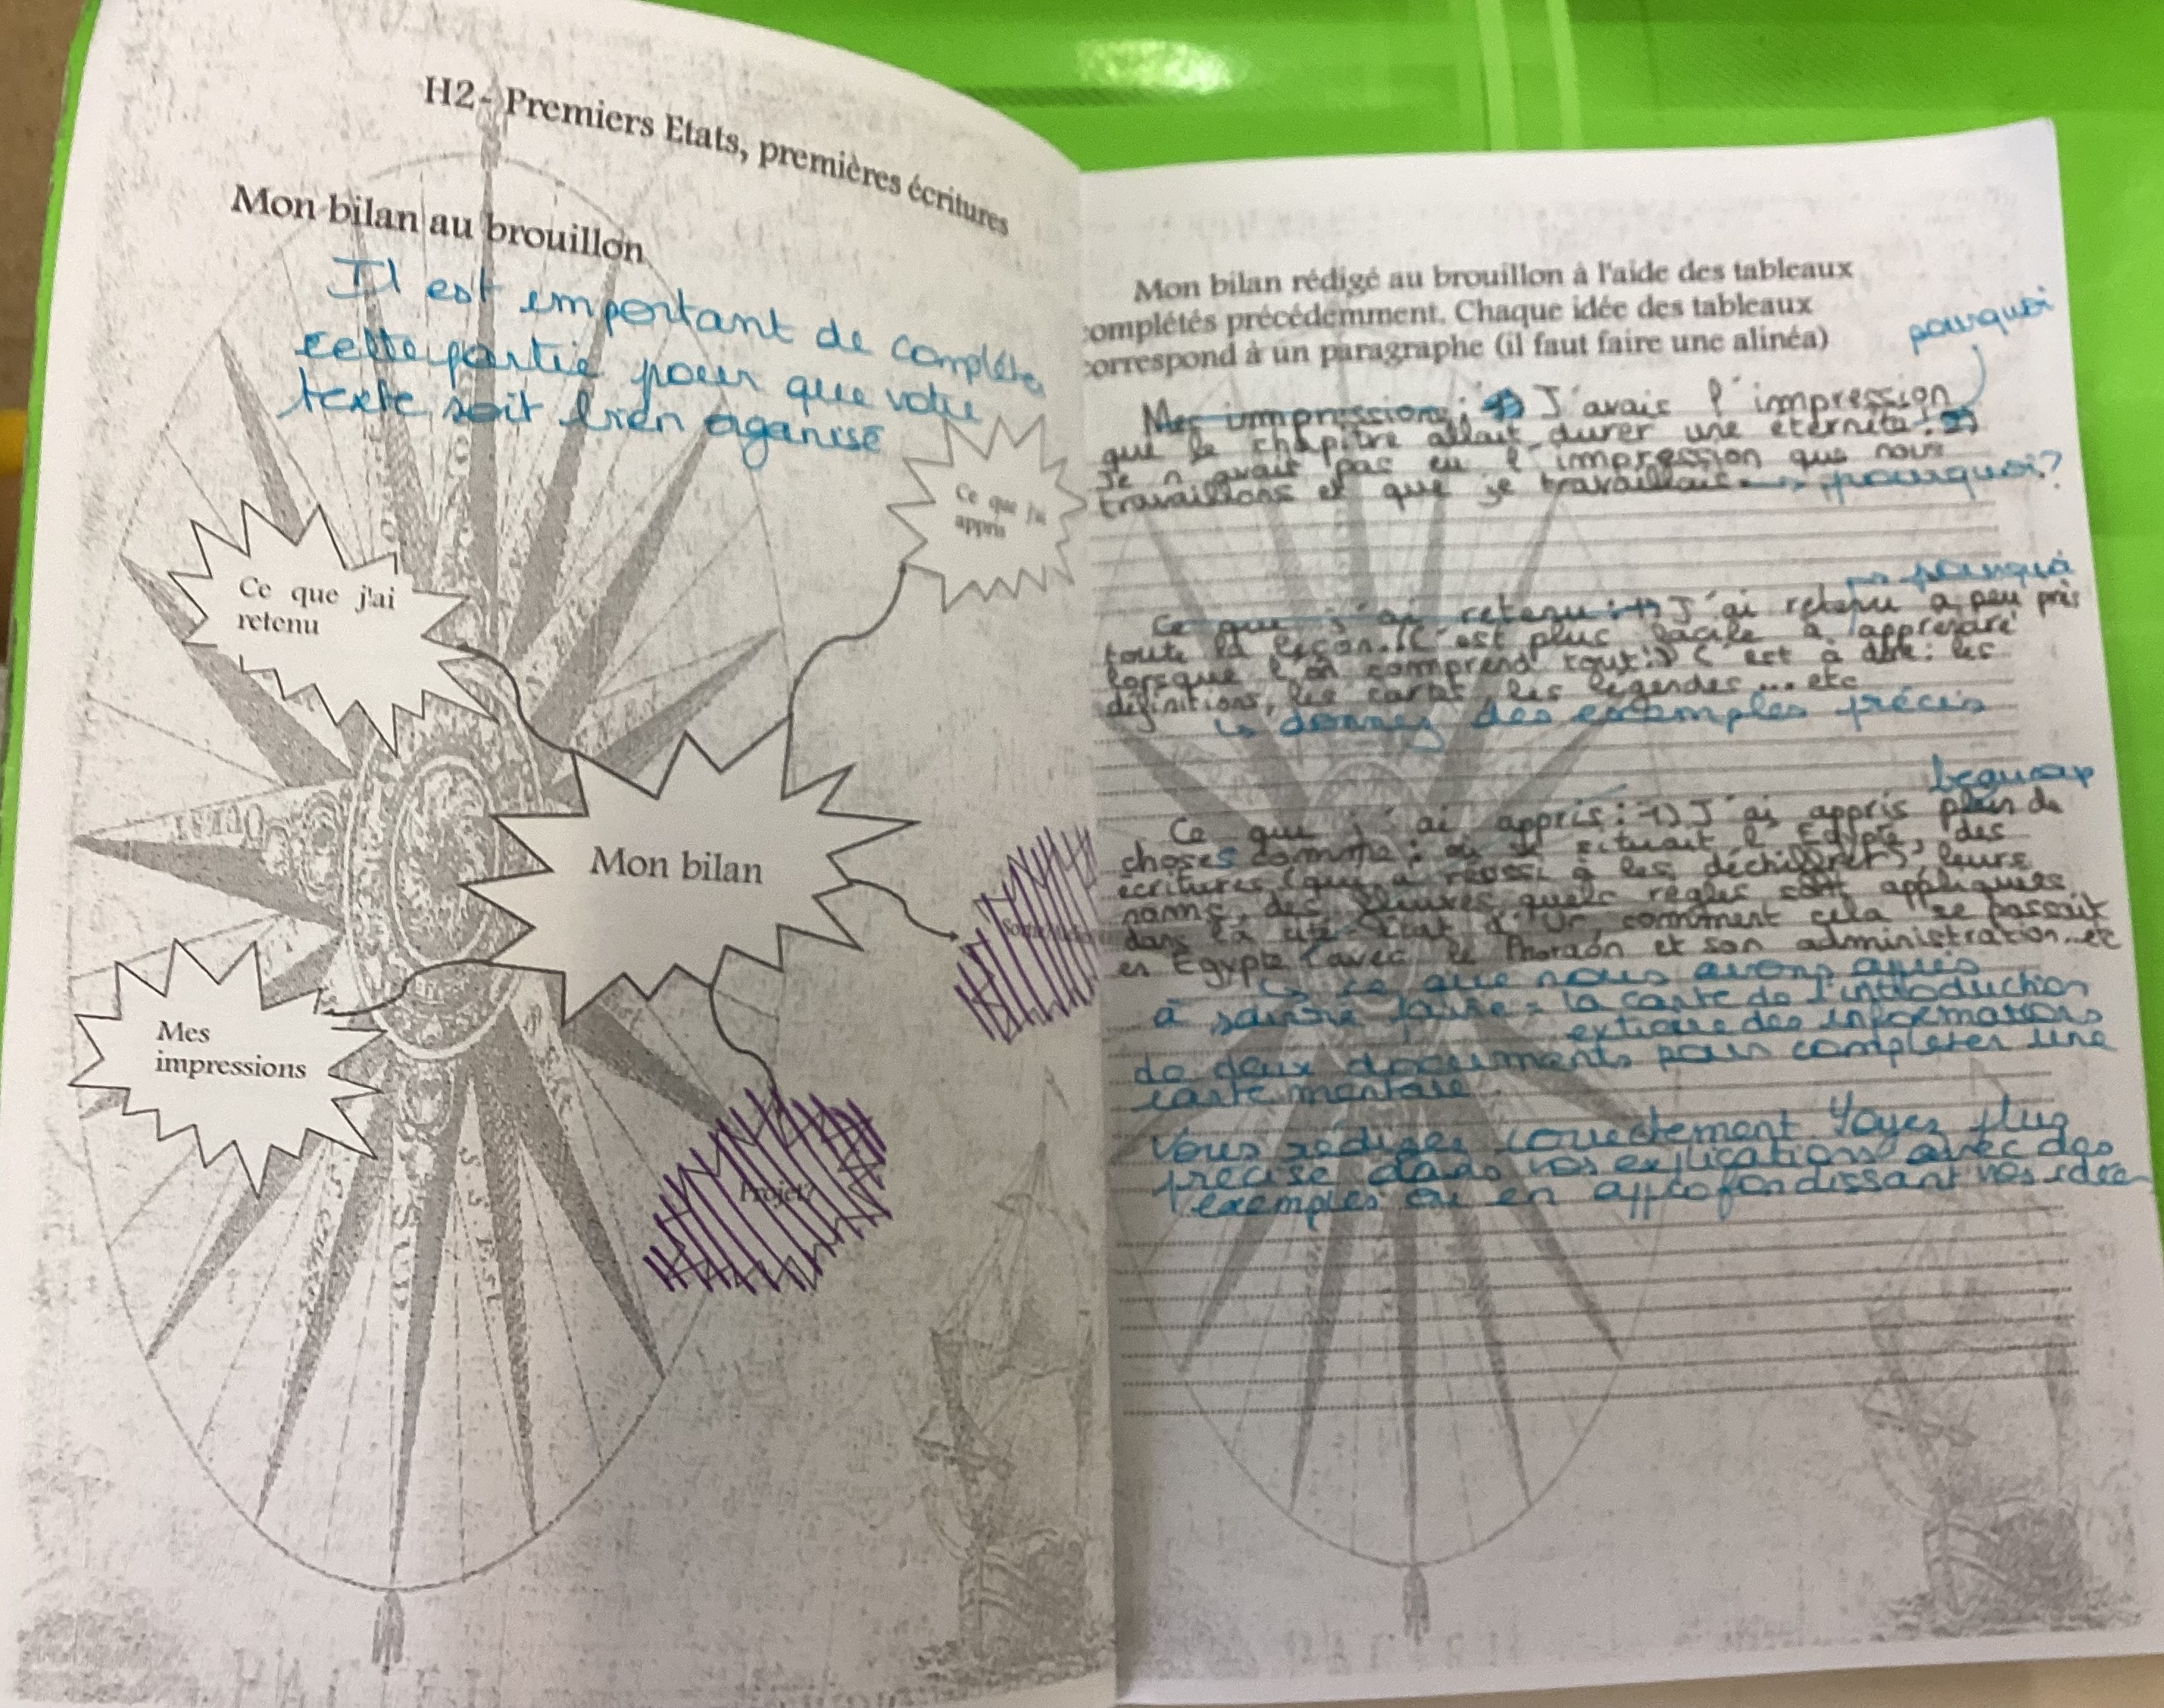 H2- Premiers Etats, premières écritures
Mon bilan au brouillon
Il est emportant de compléter
cette partie pour que votre
texte soit bien oganisé
Ce que j'ai
appris
Ce que j'ai
retenu
Mon bilan
Mes
impressions
Projet?
Mon bilan rédigé au brouillon à l'aide des tableaux
complétés précédemment. Chaque idée des tableaux
correspond à un paragraphe (il faut faire une alinéa)
pourquoi
Mes impressions : 1) J'avais l'impression
que le chapitre allait durer une éternité! 2)
Je n'avait pas eu l'impression que nous
travaillons et que je travaillais → pourquoi?
→ pourquoi
Ce que j'ai retenu : 1) J'ai retenu a peu près
toute la leçon. C'est plus facile à apprendre
lorsque l'on comprend tout. 2) C'est à dire: les
définitions, les cartes, les légendes ... etc
↳ donnez des exemples précis
beaucoup
Ce que j'ai appris : 1) J'ai appris plein de
choses comme : où se situait l'Egypte, des
écritures (qui a réussi à les déchiffrer), leurs
noms, des fleuves, quels règles sont appliquées
dans la cité-état d'Ur, comment cela se passait
en Egypte (avec le Pharaon et son administration...etc
↳ ce que nous avons appris
à savoir faire = la carte de l'introduction
extraire des informations
de deux documents pour compléter une
carte mentale.
Vous rédigez correctement. Soyez plus
précise dans vos explications avec des
exemples ou en approfondissant vos idées